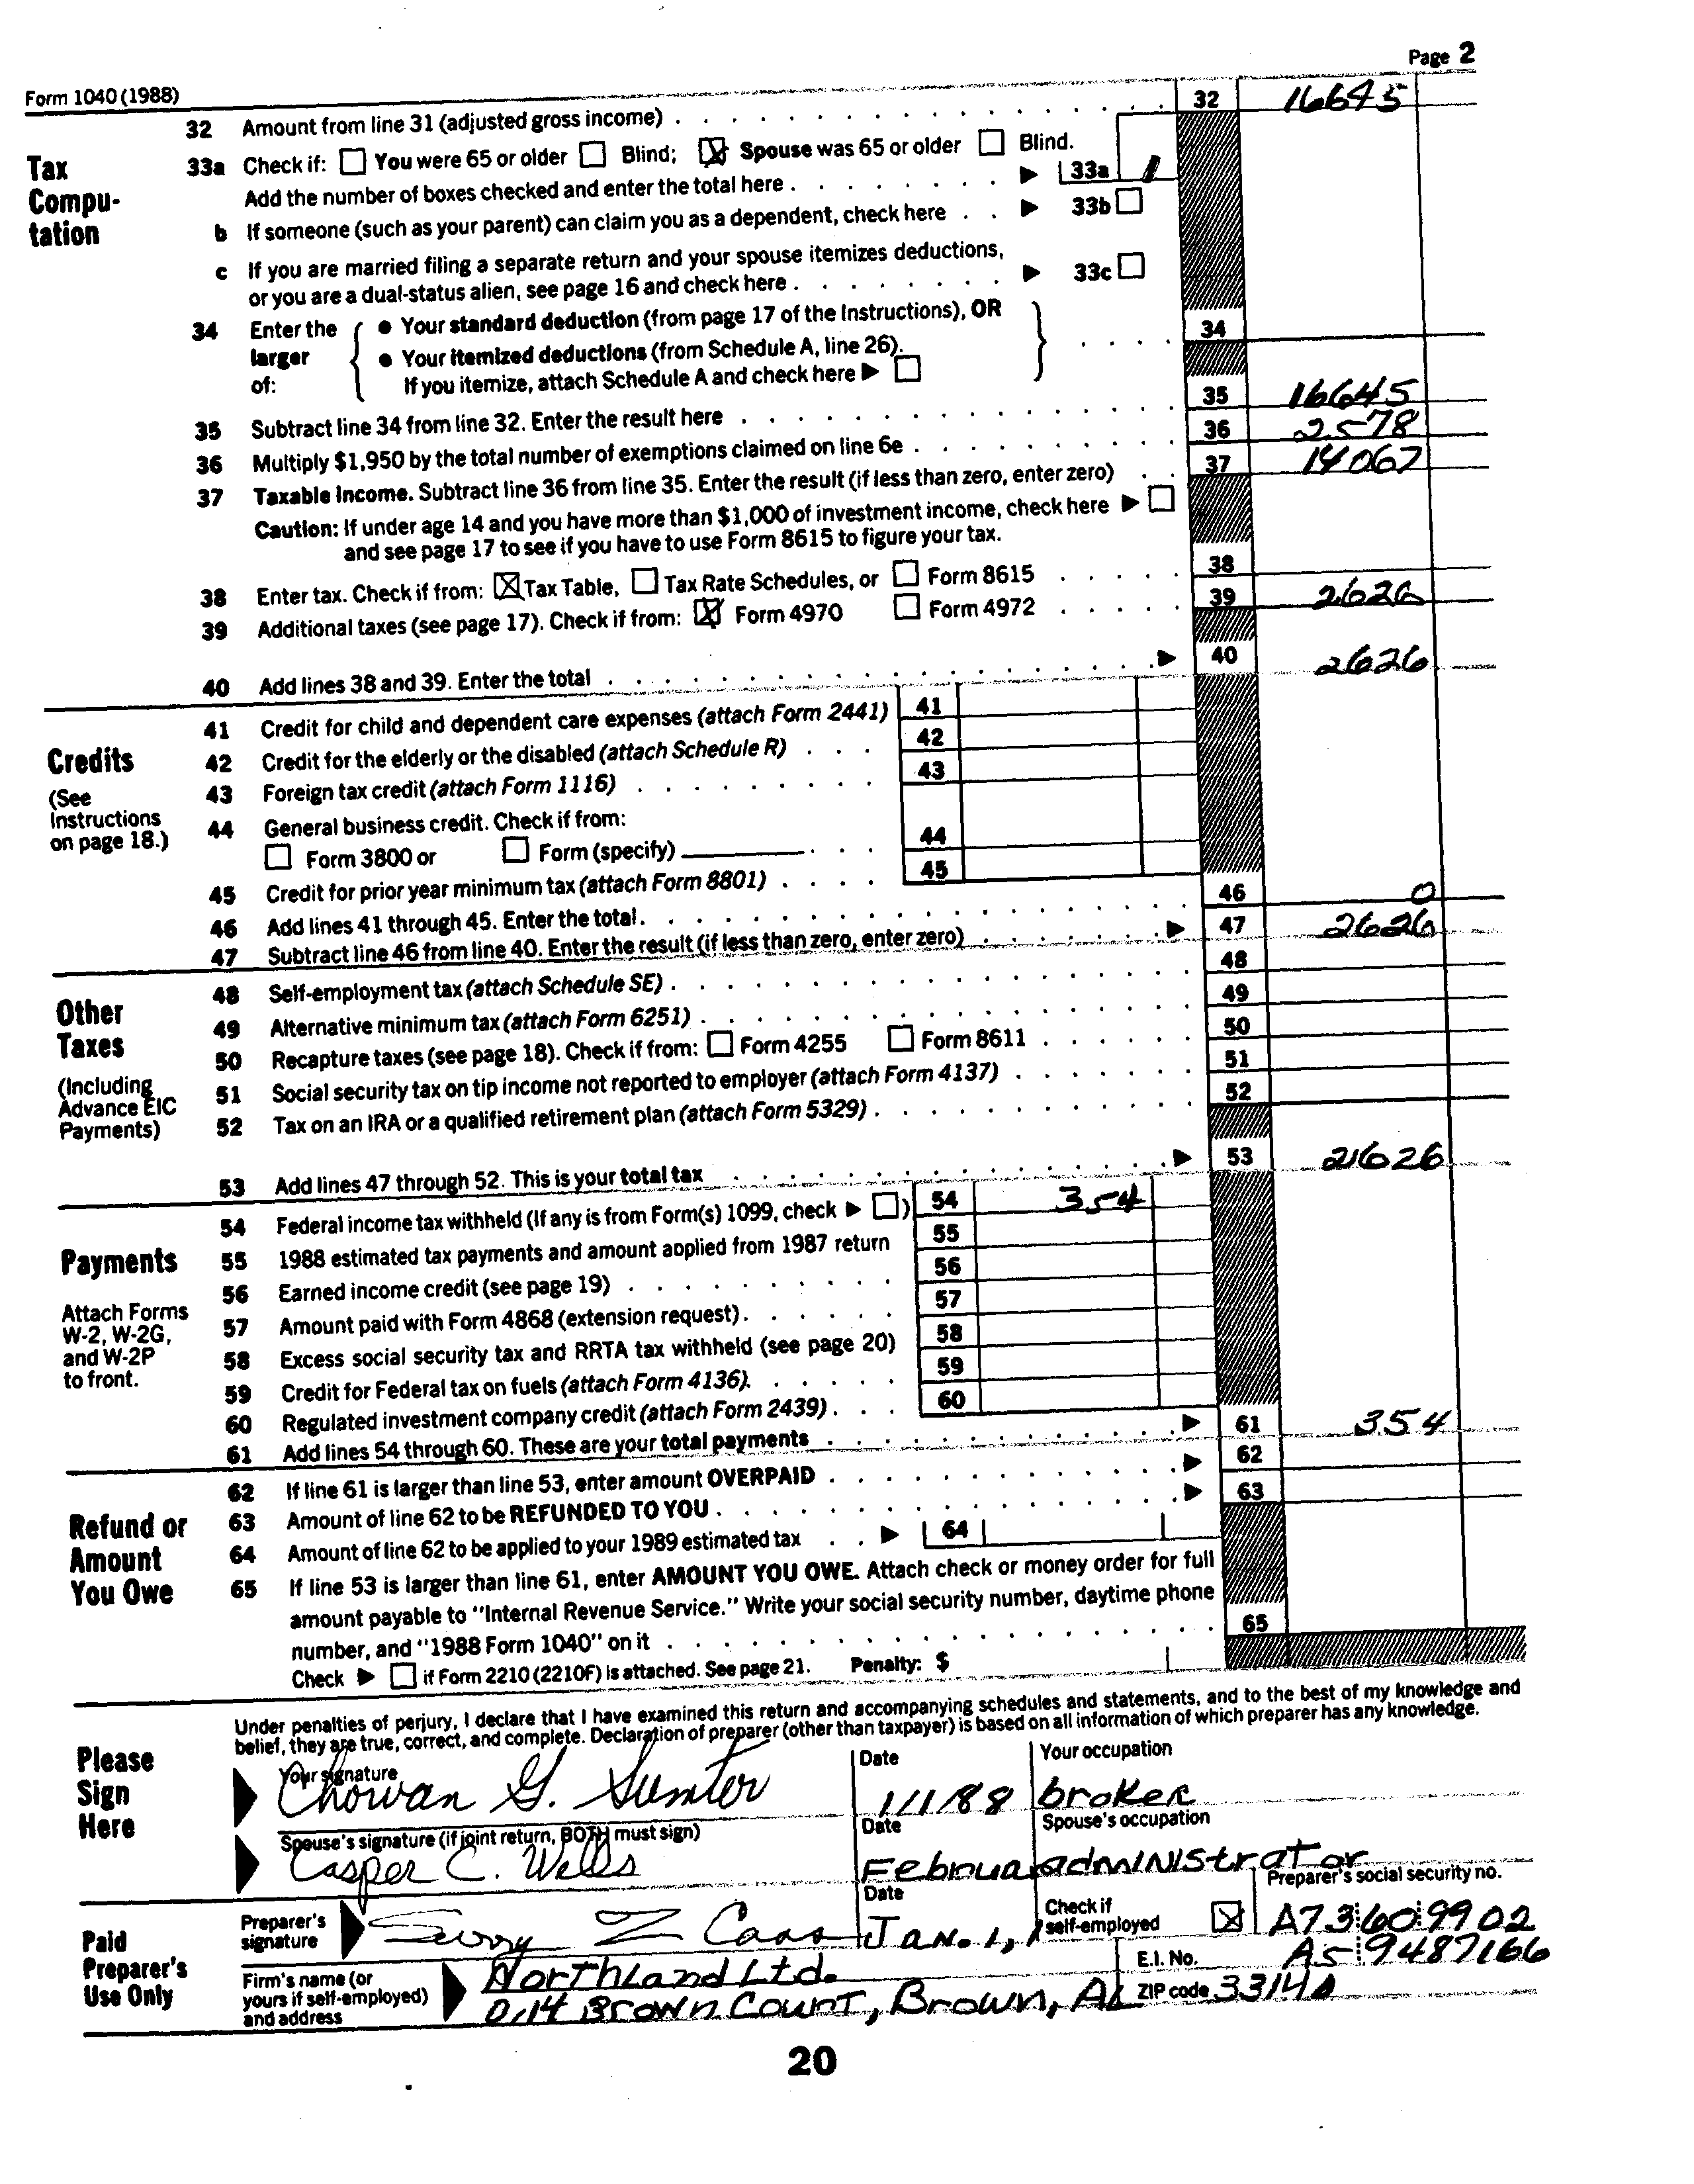 Page 2
Form 1040 (1988)
32 Amount from line 31 (adjusted gross income) 32 16645
Tax Compu-tation
33a Check if: You were 65 or older Blind; X Spouse was 65 or older Blind.
Add the number of boxes checked and enter the total here 33a 1
b If someone (such as your parent) can claim you as a dependent, check here 33b
c If you are married filing a separate return and your spouse itemizes deductions,
or you are a dual-status alien, see page 16 and check here 33c
34 Enter the larger of: • Your standard deduction (from page 17 of the Instructions), OR 34
• Your itemized deductions (from Schedule A, line 26).
If you itemize, attach Schedule A and check here
35 Subtract line 34 from line 32. Enter the result here 35 16645
36 Multiply $1,950 by the total number of exemptions claimed on line 6e 36 2578
37 Taxable income. Subtract line 36 from line 35. Enter the result (if less than zero, enter zero) 37 14067
Caution: If under age 14 and you have more than $1,000 of investment income, check here
and see page 17 to see if you have to use Form 8615 to figure your tax.
38 Enter tax. Check if from: X Tax Table, Tax Rate Schedules, or Form 8615 38
39 Additional taxes (see page 17). Check if from: X Form 4970 Form 4972 39 2626
40 Add lines 38 and 39. Enter the total 40 2626
Credits
(See Instructions on page 18.)
41 Credit for child and dependent care expenses (attach Form 2441) 41
42 Credit for the elderly or the disabled (attach Schedule R) 42
43 Foreign tax credit (attach Form 1116) 43
44 General business credit. Check if from:
Form 3800 or Form (specify) 44
45 Credit for prior year minimum tax (attach Form 8801) 45
46 Add lines 41 through 45. Enter the total. 46 0
47 Subtract line 46 from line 40. Enter the result (if less than zero, enter zero) 47 2626
Other Taxes
(Including Advance EIC Payments)
48 Self-employment tax (attach Schedule SE) 48
49 Alternative minimum tax (attach Form 6251) 49
50 Recapture taxes (see page 18). Check if from: Form 4255 Form 8611 50
51 Social security tax on tip income not reported to employer (attach Form 4137) 51
52 Tax on an IRA or a qualified retirement plan (attach Form 5329) 52
53 Add lines 47 through 52. This is your total tax 53 2626
Payments
Attach Forms W-2, W-2G, and W-2P to front.
54 Federal income tax withheld (If any is from Form(s) 1099, check ) 54 354
55 1988 estimated tax payments and amount applied from 1987 return 55
56 Earned income credit (see page 19) 56
57 Amount paid with Form 4868 (extension request) 57
58 Excess social security tax and RRTA tax withheld (see page 20) 58
59 Credit for Federal tax on fuels (attach Form 4136). 59
60 Regulated investment company credit (attach Form 2439) 60
61 Add lines 54 through 60. These are your total payments 61 354
Refund or Amount You Owe
62 If line 61 is larger than line 53, enter amount OVERPAID 62
63 Amount of line 62 to be REFUNDED TO YOU 63
64 Amount of line 62 to be applied to your 1989 estimated tax 64
65 If line 53 is larger than line 61, enter AMOUNT YOU OWE. Attach check or money order for full
amount payable to "Internal Revenue Service." Write your social security number, daytime phone
number, and "1988 Form 1040" on it 65
Check if Form 2210 (2210F) is attached. See page 21. Penalty: $
Under penalties of perjury, I declare that I have examined this return and accompanying schedules and statements, and to the best of my knowledge and
belief, they are true, correct, and complete. Declaration of preparer (other than taxpayer) is based on all information of which preparer has any knowledge.
Please Sign Here
Your signature Date Your occupation
Chowan G. Sumter 1/1/88 broker
Spouse's signature (if joint return, BOTH must sign) Date Spouse's occupation
Casper C. Wells Februa administrator
Paid Preparer's Use Only
Preparer's signature Z Cass Date Jan. 1, 1 Check if self-employed X Preparer's social security no. A73 60 9902
Firm's name (or yours if self-employed) and address Northland Ltd. E.I. No. A5 9487166
0,14 Brown Count, Brown, AL ZIP code 33140
20